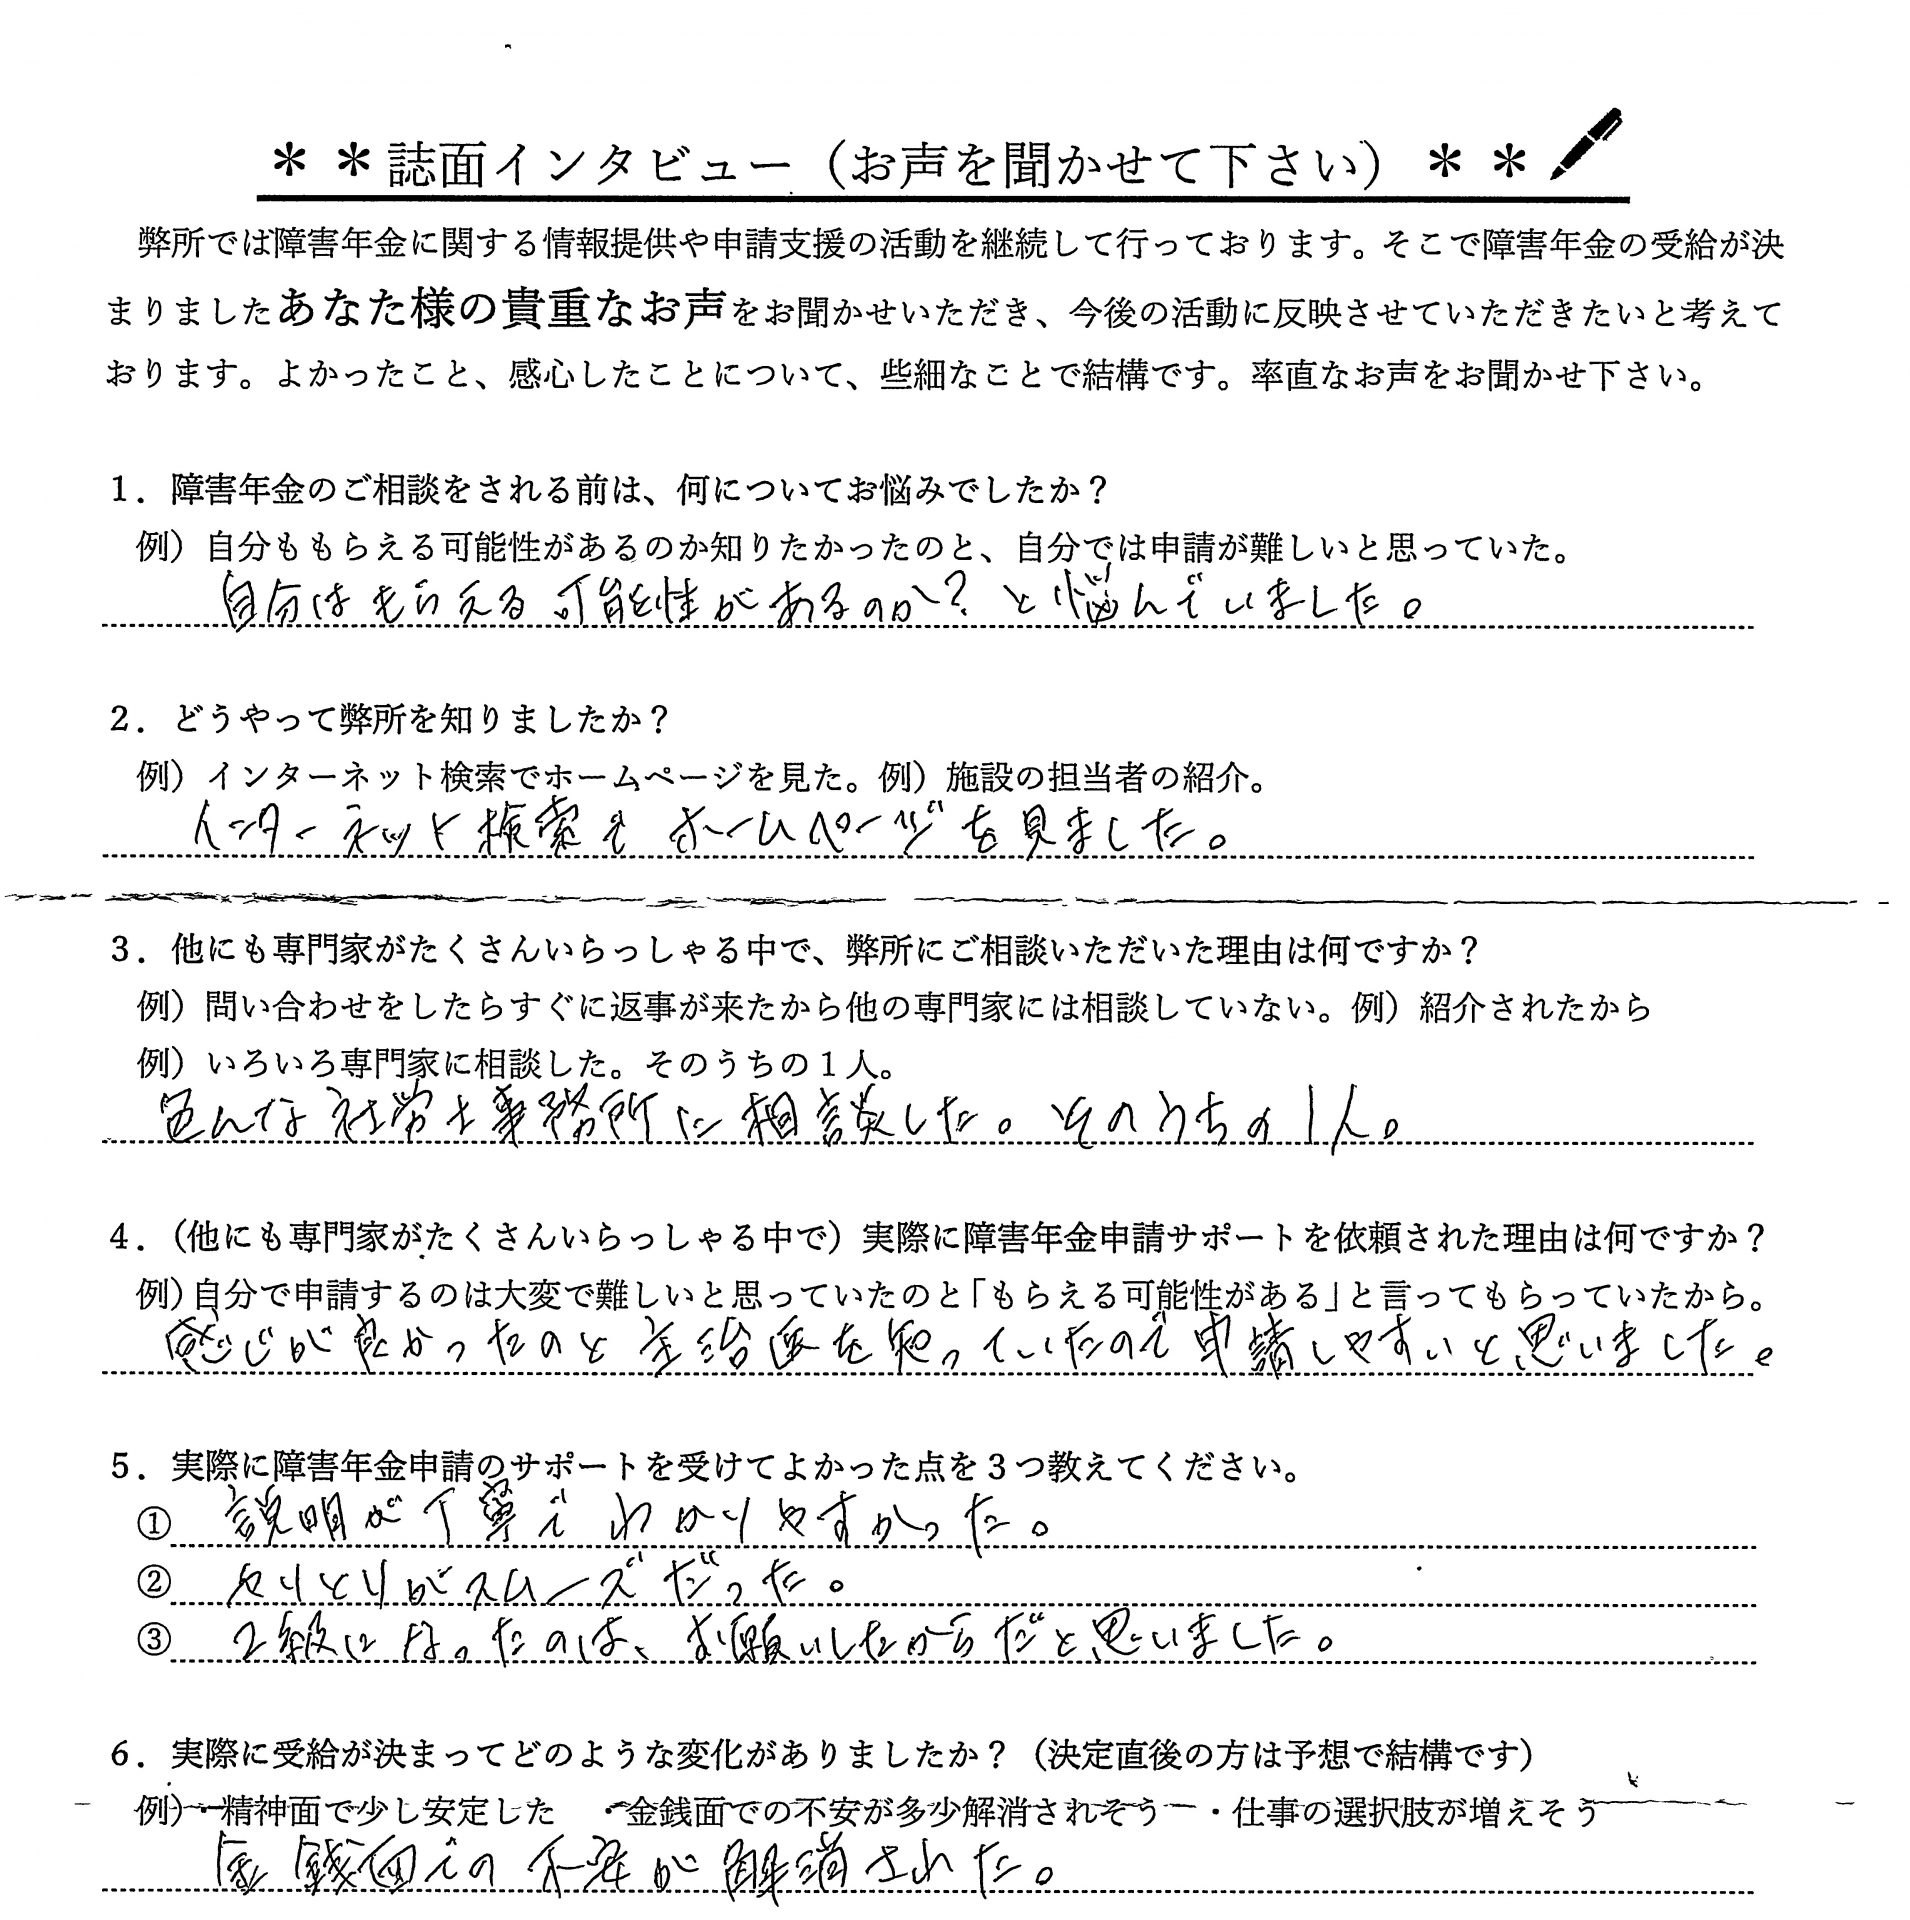 ＊＊誌面インタビュー（お声を聞かせて下さい）＊＊
弊所では障害年金に関する情報提供や申請支援の活動を継続して行っております。そこで障害年金の受給が決
まりましたあなた様の貴重なお声をお聞かせいただき、今後の活動に反映させていただきたいと考えて
おります。よかったこと、感心したことについて、些細なことで結構です。率直なお声をお聞かせ下さい。
1．障害年金のご相談をされる前は、何についてお悩みでしたか？
例）自分ももらえる可能性があるのか知りたかったのと、自分では申請が難しいと思っていた。
自分はもらえる可能性があるのか？と悩んでいました。
2．どうやって弊所を知りましたか？
例）インターネット検索でホームページを見た。例）施設の担当者の紹介。
インターネット検索でホームページを見ました。
3．他にも専門家がたくさんいらっしゃる中で、弊所にご相談いただいた理由は何ですか？
例）問い合わせをしたらすぐに返事が来たから他の専門家には相談していない。例）紹介されたから
例）いろいろ専門家に相談した。そのうちの1人。
色んな社労士事務所に相談した。そのうちの1人。
4．（他にも専門家がたくさんいらっしゃる中で）実際に障害年金申請サポートを依頼された理由は何ですか？
例）自分で申請するのは大変で難しいと思っていたのと「もらえる可能性がある」と言ってもらっていたから。
感じが良かったのと主治医を知っていたので申請しやすいと思いました。
5．実際に障害年金申請のサポートを受けてよかった点を3つ教えてください。
① 説明が丁寧でわかりやすかった。
② やりとりがスムーズだった。
③ 2級になったのは、お願いしたからだと思いました。
6．実際に受給が決まってどのような変化がありましたか？（決定直後の方は予想で結構です）
例）・精神面で少し安定した ・金銭面での不安が多少解消されそう ・仕事の選択肢が増えそう
金銭面での不安が解消された。